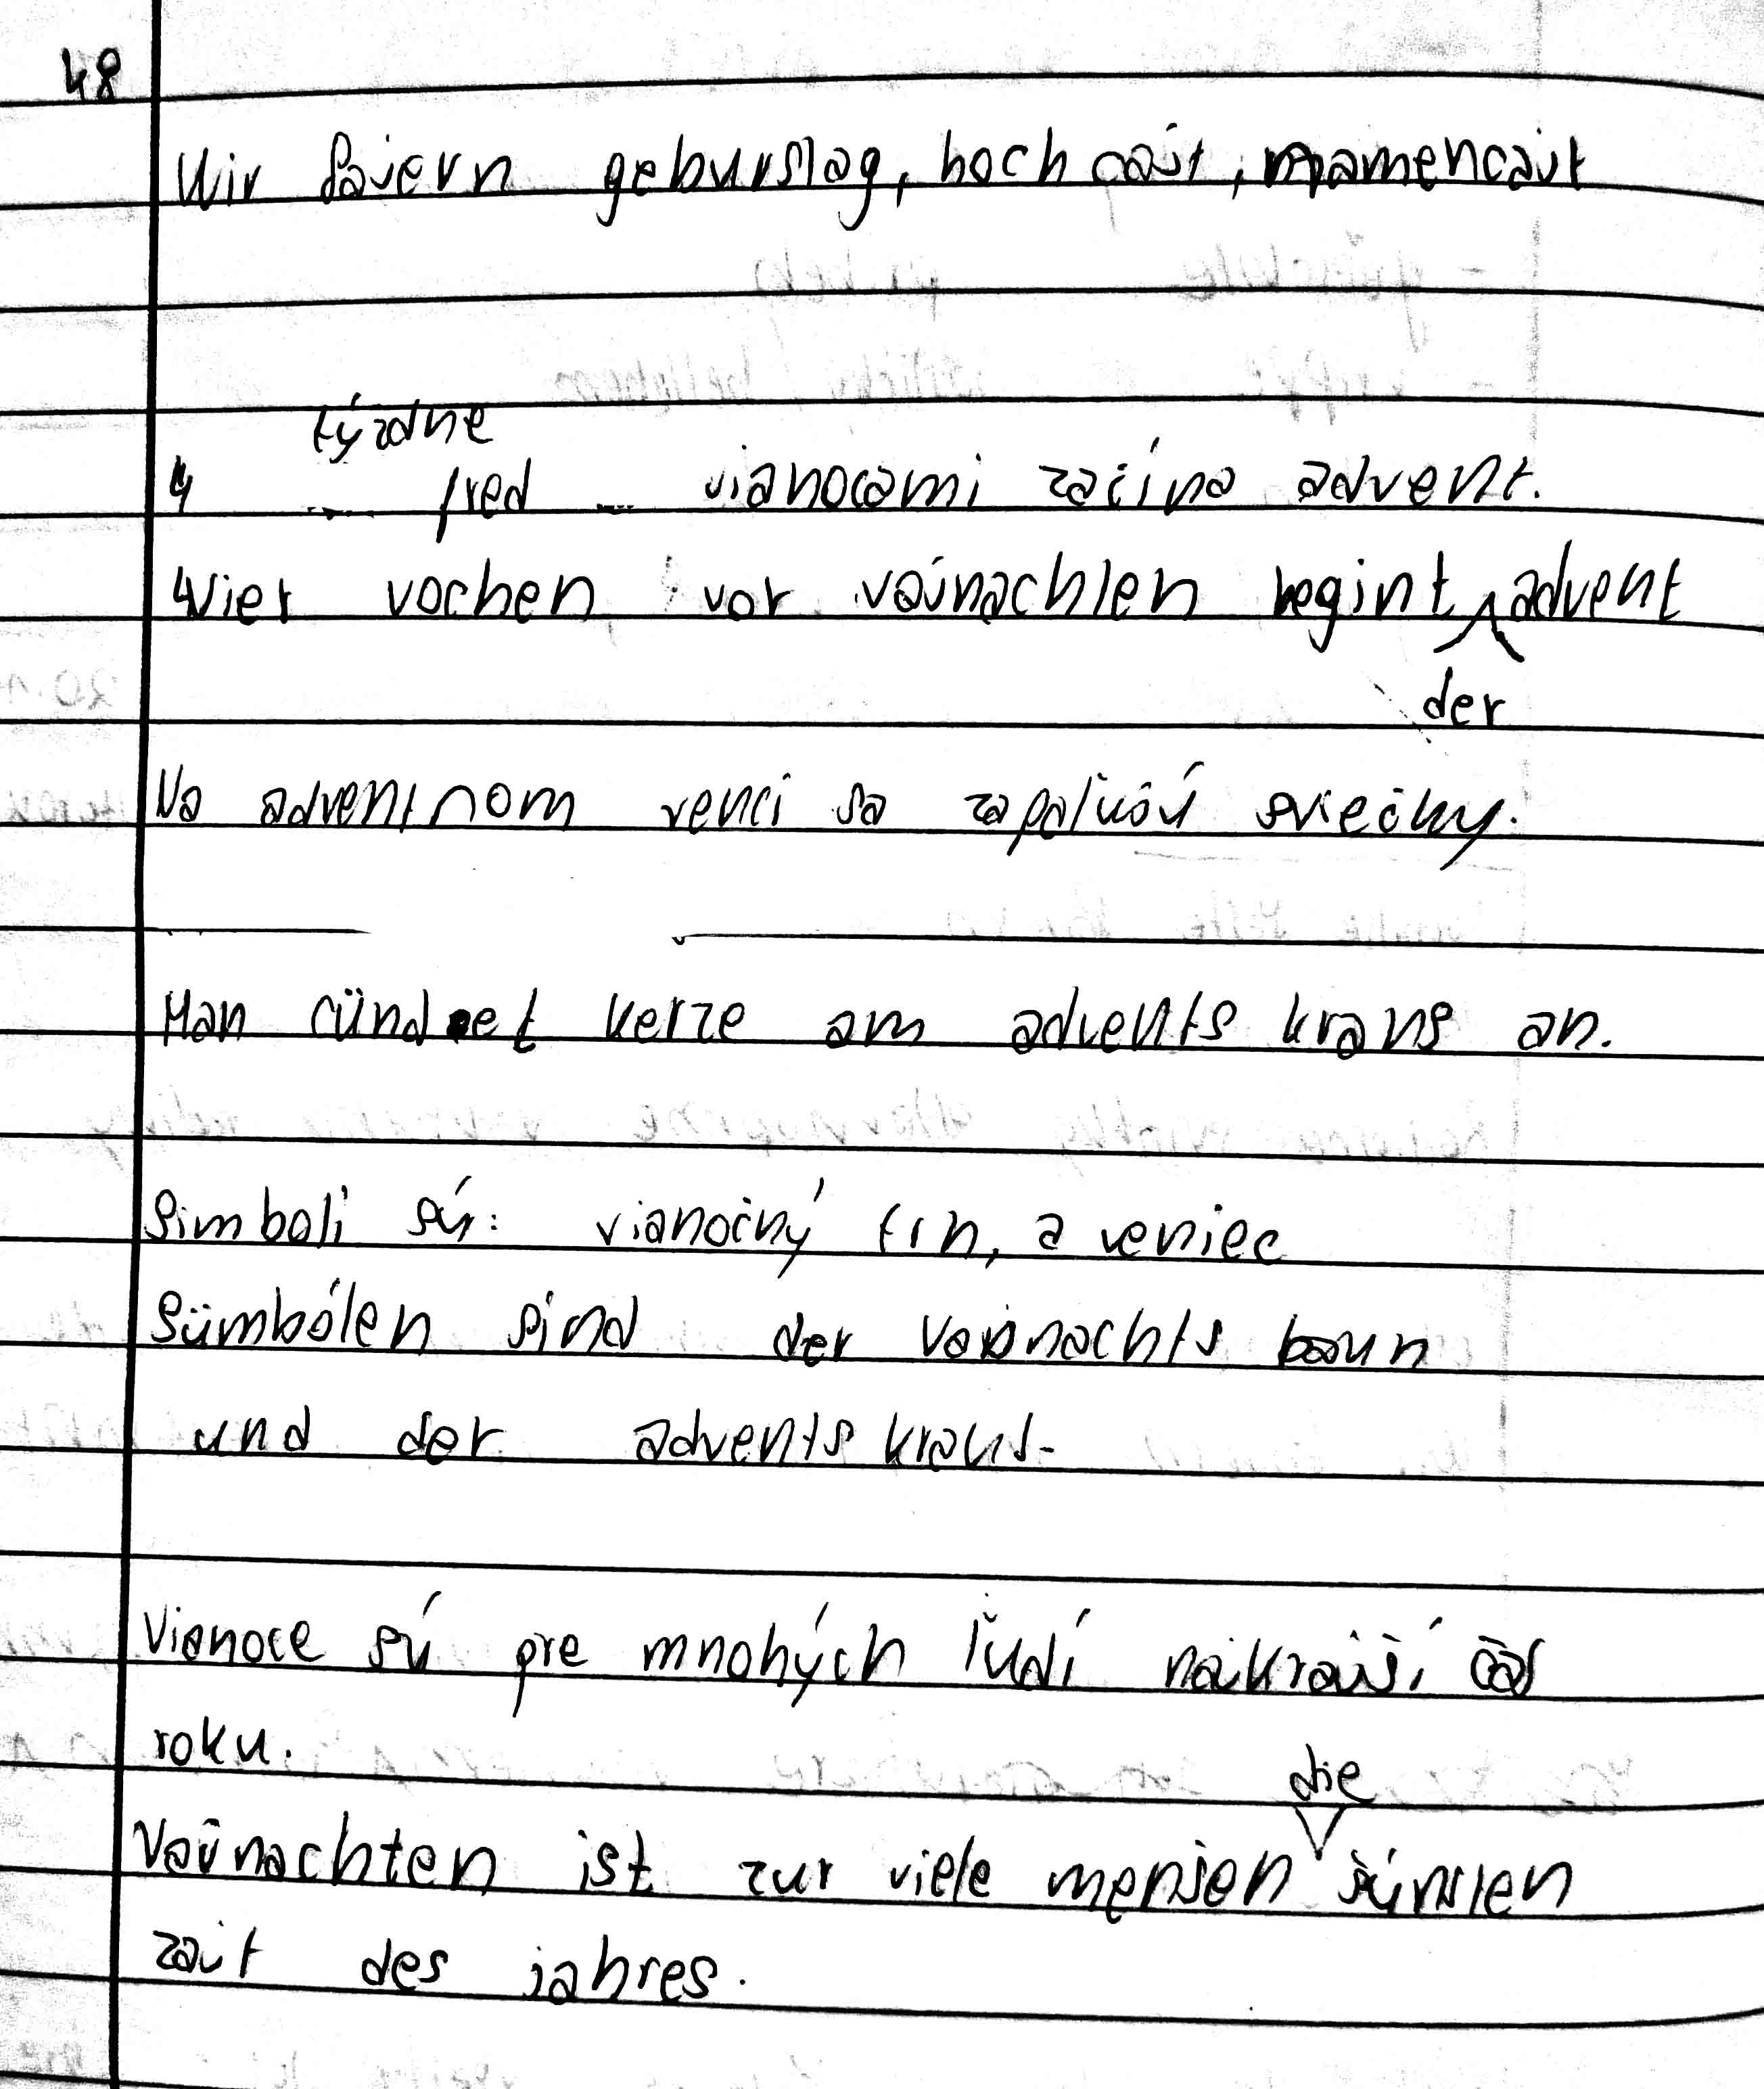 48
Wir fajern geburstag, hoch cajt, namencajt
týzdne
4 ... pred ... vianocami začína advent.
Vier vochen vor vajnachten begint advent
der
Na adventnom venci sa zapaľujú sviečky.
Man cündet kerze am advents krans an.
Simboli sú: vianočný trh, a veniec
Sümbólen sind der Vajnachts baun
und der advents krans.
Vianoce sú pre mnohých ľudí najkrajší čas
roku.
die
Vajnachten ist zur viele menšen šünsten
zait des jahres.